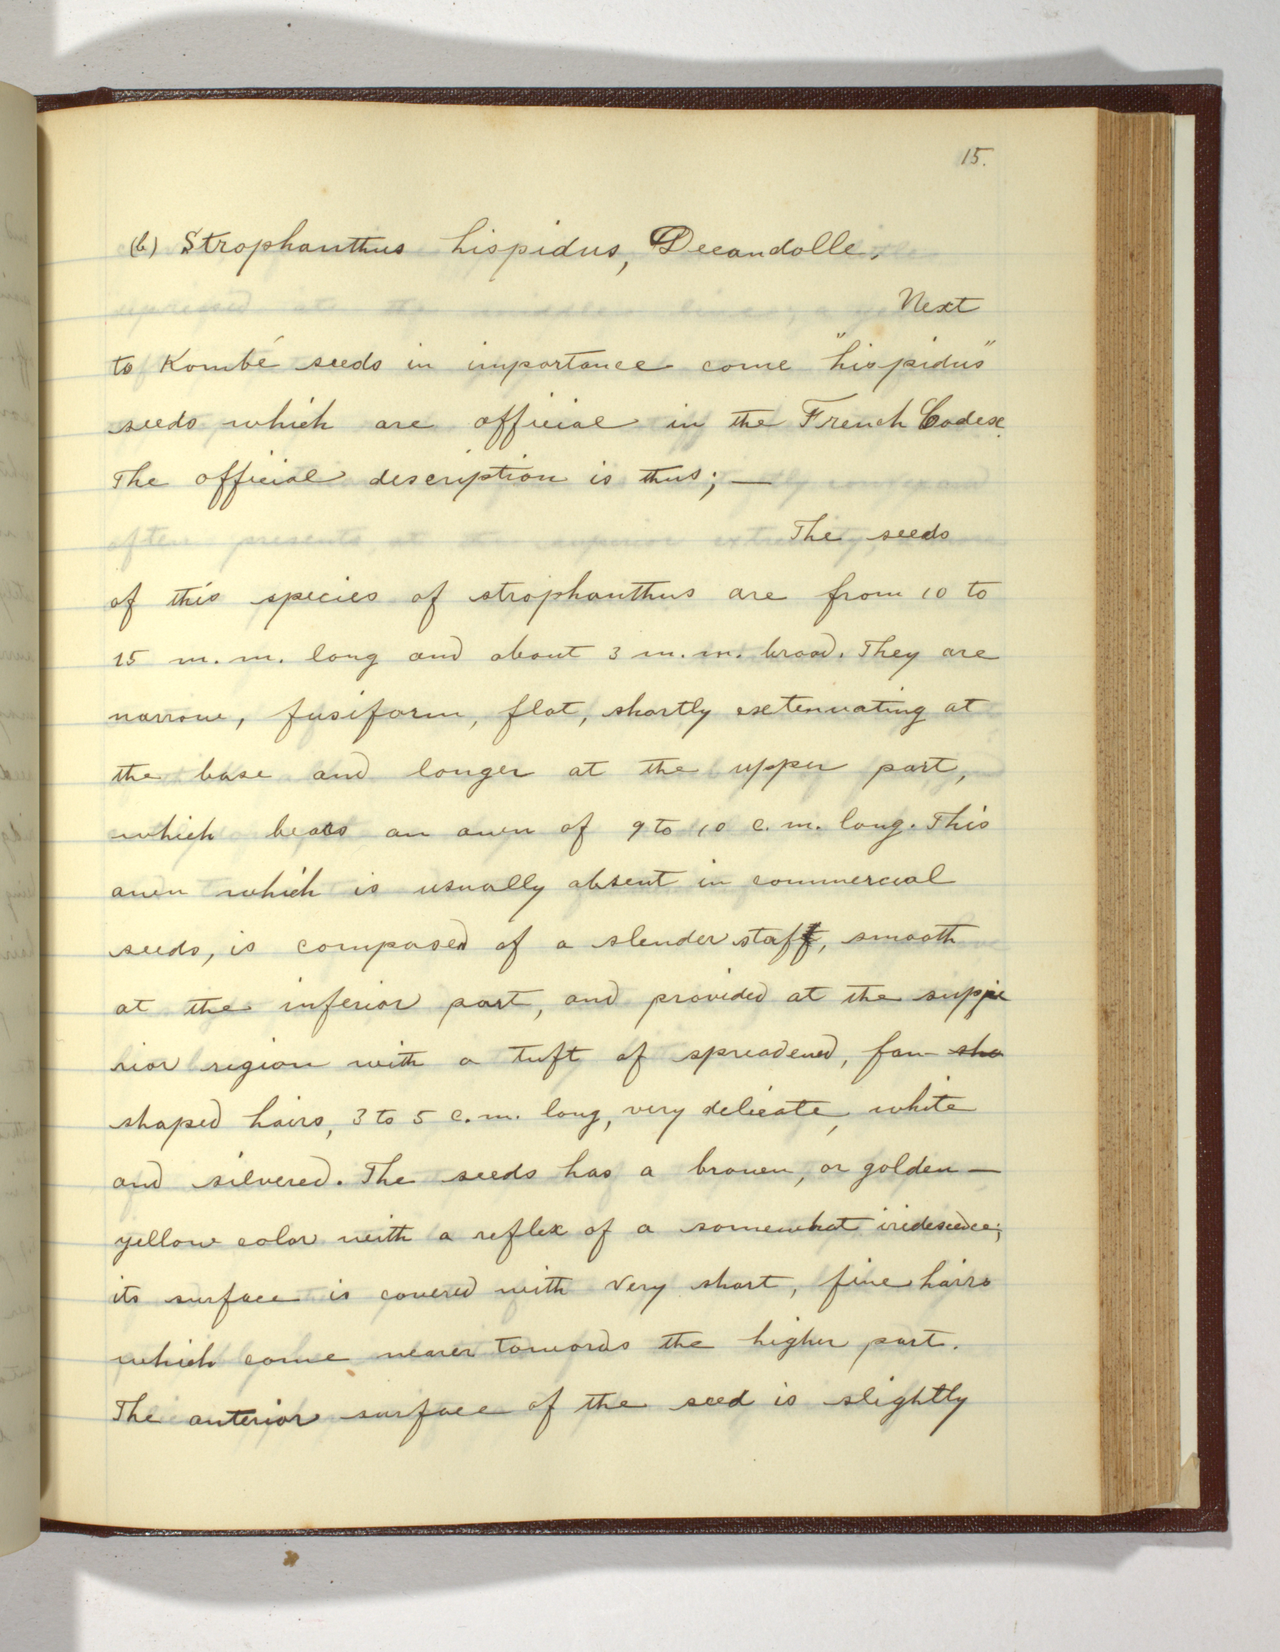 15.
(b) Strophanthus hispidus, Decandolle.
Next
to Kombé seeds in importance come "hispidus"
seeds which are official in the French Codex.
The official description is thus; —
The seeds
of this species of strophanthus are from 10 to
15 m.m. long and about 3 m.m. broad. They are
narrow, fusiform, flat, shortly extenuating at
the base and longer at the upper part,
which bears an awn of 9 to 10 c.m. long. This
awn which is usually absent in commercial
seeds, is composed of a slender staff, smooth
at the inferior part, and provided at the suppe
rior region with a tuft of spreadened, fan- sha
shaped hairs, 3 to 5 c.m. long, very delicate, white
and silvered. The seeds has a brown, or golden —
yellow color with a reflex of a somewhat iridescence;
its surface is covered with very short, fine hairs
which come nearer towards the higher part.
The anterior surface of the seed is slightly